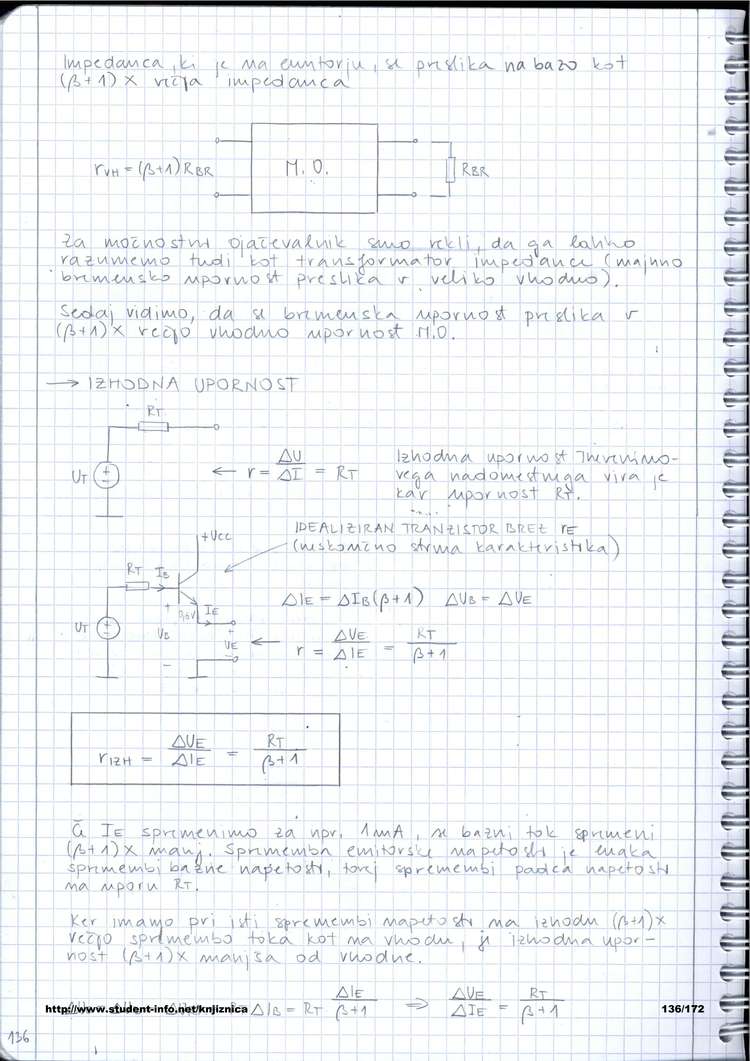 Impedanca, ki je na emitorju, se preslika na bazo kot
(β+1)× večja impedanca
rVH = (β+1)RBR
M. O.
RBR
Za močnostni ojačevalnik smo rekli, da ga lahko
razumemo tudi kot transformator impedance (majhno
bremensko upornost preslika v veliko vhodno).
Sedaj vidimo, da se bremenska upornost preslika v
(β+1)× večjo vhodno upornost M.O.
→ IZHODNA UPORNOST
RT
UT
← r = ΔU/ΔI = RT
Izhodna upornost Theveninovega
vega nadomestnega vira je
kar upornost RT.
+UCC
IDEALIZIRAN TRANZISTOR BREZ rE
(neskončno strma karakteristika)
RT IB
ΔIE = ΔIB(β+1) ΔUB = ΔUE
0,6V IE
UT
UB
UE
← r = ΔUE/ΔIE = RT/β+1
rIZH = ΔUE/ΔIE = RT/β+1
Če IE spremenimo za npr. 1mA, se bazni tok spremeni
(β+1)× manj. Sprememba emitorske napetosti je enaka
spremembi bazne napetosti, torej spremembi padca napetosti
na uporu RT.
Ker imamo pri isti spremembi napetosti na izhodu (β+1)×
večjo spremembo toka kot na vhodu, je izhodna upor-
nost (β+1)× manjša od vhodne.
ΔIB = RT ΔIE/β+1 ⇒ ΔUE/ΔIE = RT/β+1
http://www.student-info.net/knjiznica
136/172
136